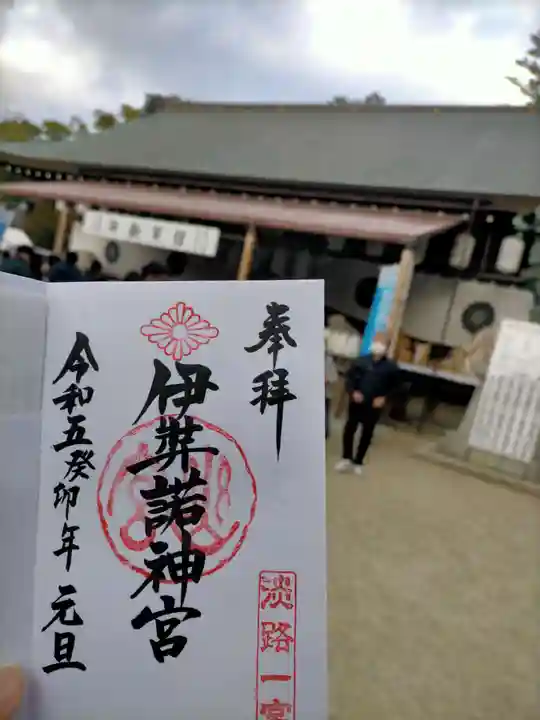 奉拝
伊弉諾神宮
令和五癸卯年 元旦
淡路一宮